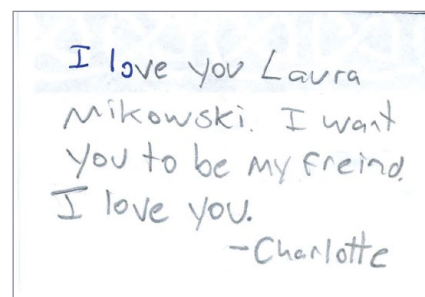 I love you Laura
Mikowski. I want
you to be my freind.
I love you.
-Charlotte